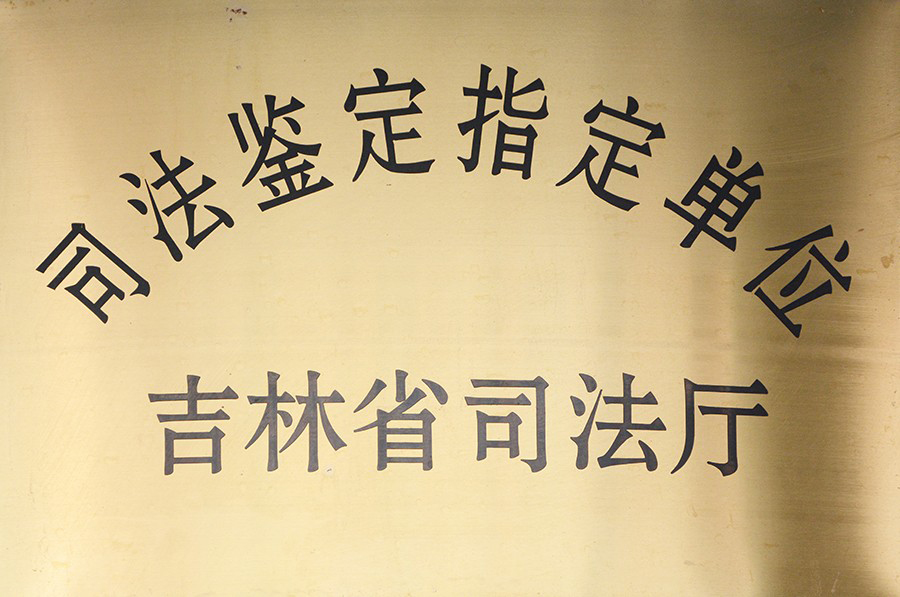 司法鉴定指定单位
吉林省司法厅